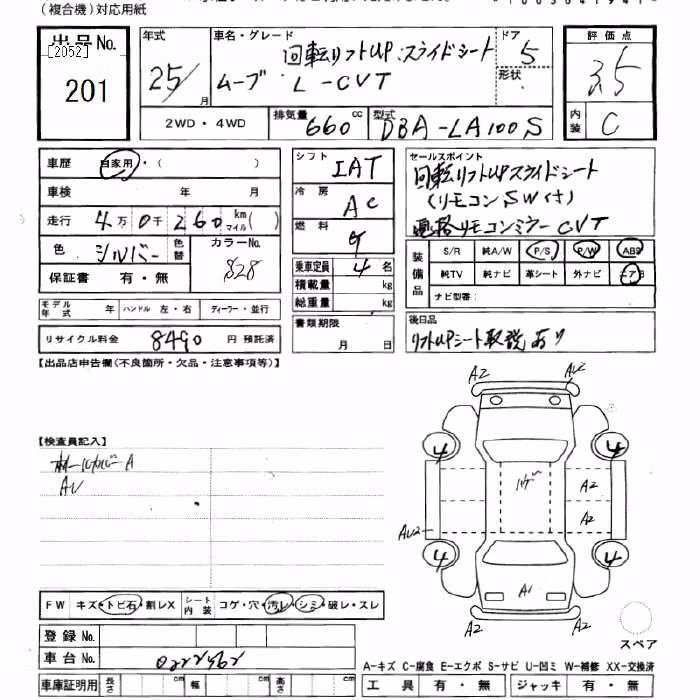 (複合機)対応用紙
出品No.
[2052]
201
年式
25/ 月
車名・グレード
回転リフトUP スライドシート
ムーブ L-CVT
ドア 5
形状
評価点
3.5
内装 C
2WD・4WD
排気量 660 cc
型式 DBA-LA100S
車歴 自家用・( )
車検 年 月
走行 4万0千260 km マイル( )
色 シルバー 色替
カラーNo. S28
保証書 有・無
モデル年式 年 ハンドル 左・右 ディーラー・並行
リサイクル料金 8490 円 預託済
シフト IAT
冷房 AC
燃料 G
乗車定員 4 名
積載量 kg
総重量 kg
書類期限
月 日
セールスポイント
回転リフトUPスライドシート
(リモコンSW付)
電格リモコンミラー CVT
装備品
S/R 純A/W P/S P/W ABS
純TV 純ナビ 革シート 外ナビ エアB
ナビ型番:
後日品
リフトUPシート取説あり
【出品店申告欄(不良箇所・欠品・注意事項等)】
【検査員記入】
ホイールカバーA
AU
A2 AU2
4 4
A2
A2
AU2
4 4
A1
A2 A2
スペア
FW キズ・トビ石・割レX
シート内装 コゲ・穴・汚レ・シミ・破レ・スレ
登録No.
車台No. 0222562
車庫証明用 長さ cm 幅 cm 高さ cm
A-キズ C-腐食 E-エクボ S-サビ U-凹ミ W-補修 XX-交換済
工具 有・無 ジャッキ 有・無